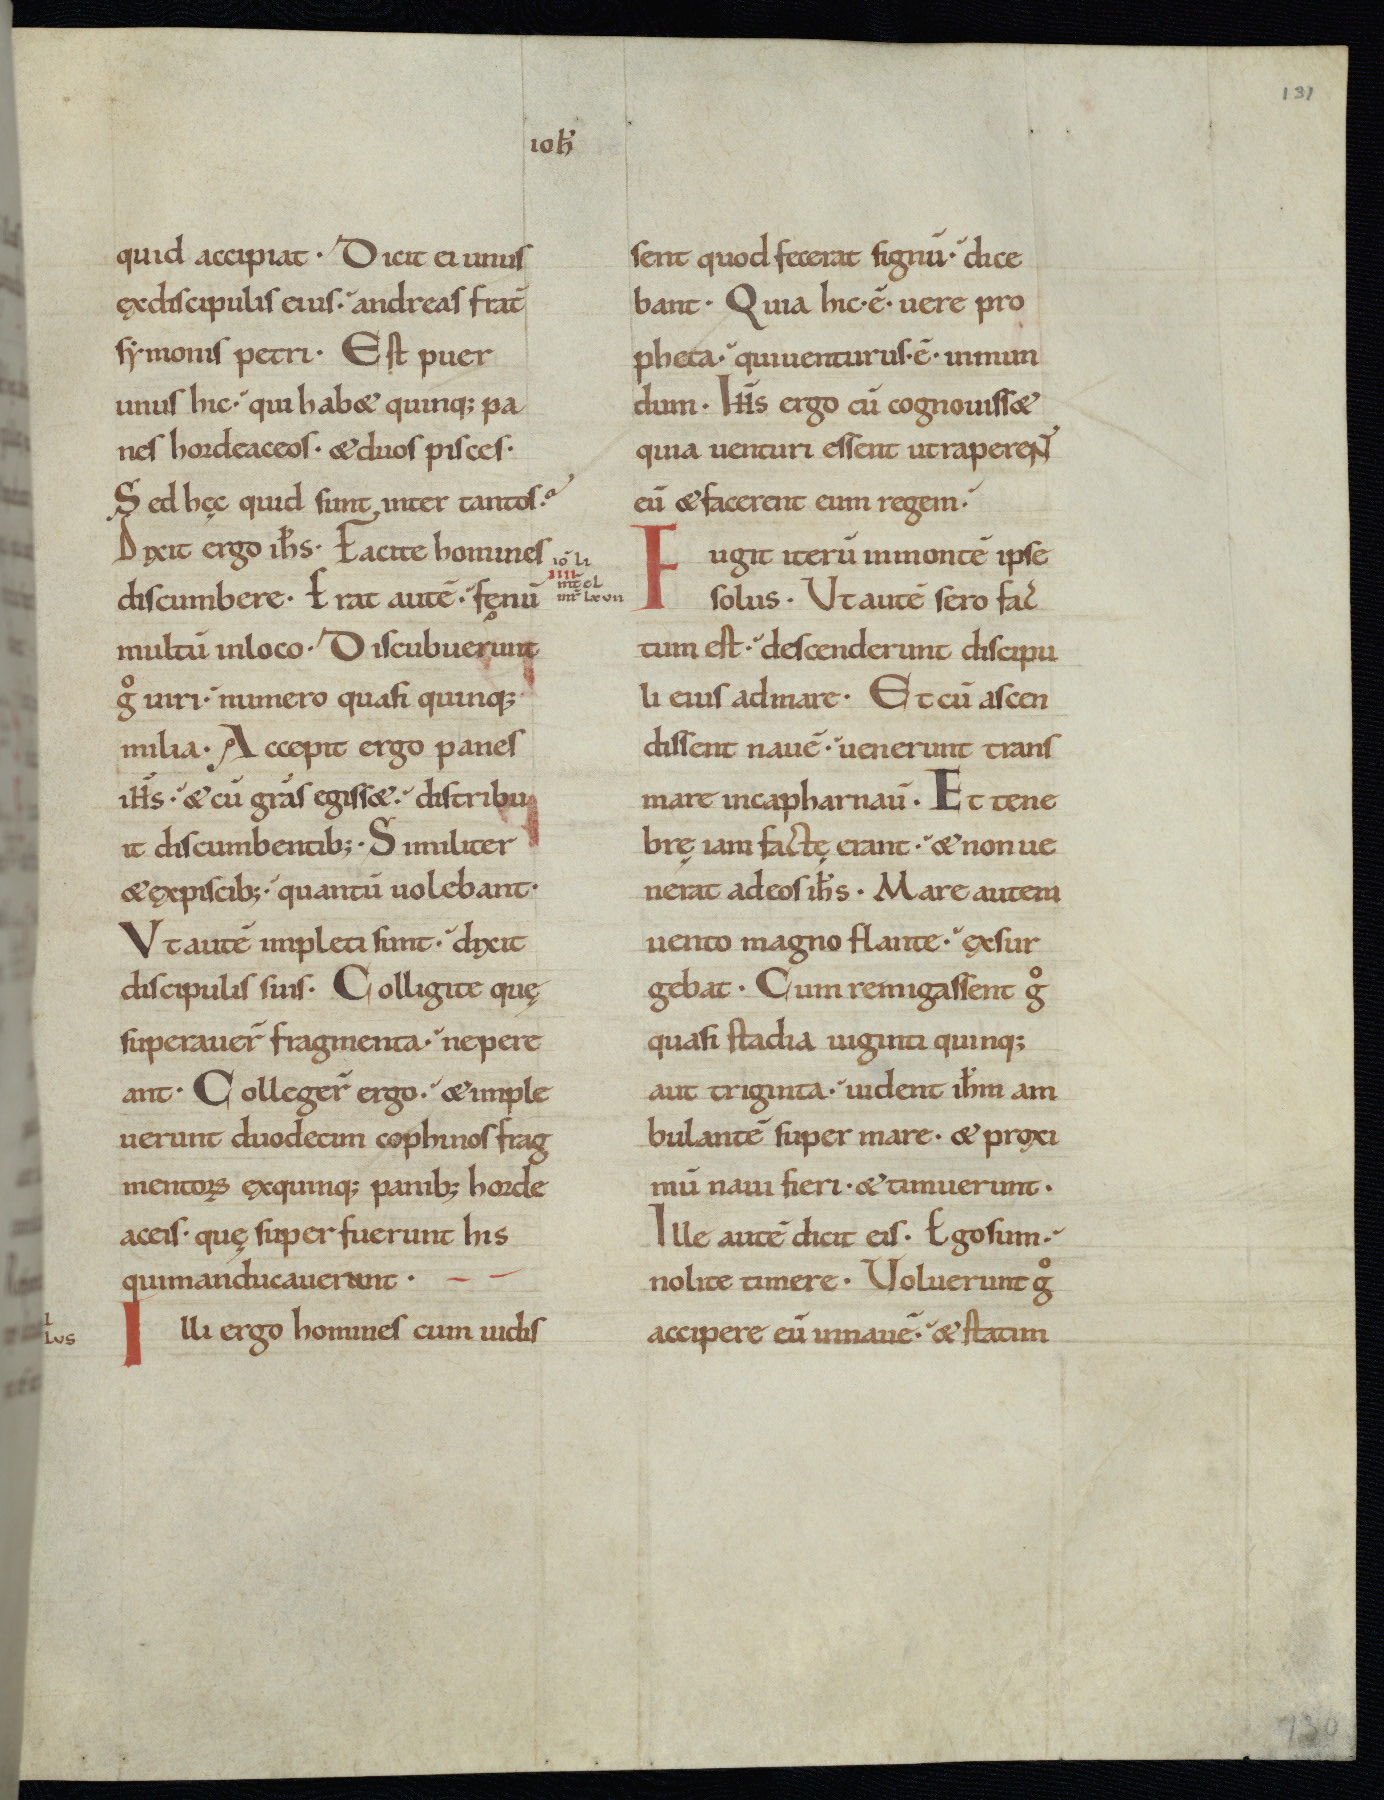 131
ioħ
quid accipiat · Dicit ei unus
ęxdiscipulis eius · andreas frat̄
symonis petri · Est puer
unus hic · qui hab& quinq; pa
nes hordeaceos · &duos pisces ·
Sed hęc quid sunt inter tantos ·
Dixit ergo ih̄s · Facite homines
discumbere · Erat autē · fęnū
multū inloco · Discubuerunt
g̊ uiri · numero quasi quinq;
milia · Accepit ergo panes
ih̄s · & cū gr̄as egiss& · distribu
it discumbentib; · Similiter
&ęxpiscib; · quantū uolebant ·
Vt autē impleti sunt · dixit
discipulis suis · Colligite quę
superauer̄ fragmenta · nepere
ant · Colleger̄ ergo · &imple
uerunt duodecim cophinos frag
mentoꝝ ęxquinq; panib; horde
aceis · quę superfuerunt his
quimanducauerunt ·
Illi ergo homines cum uidis
L
LVS
iō li
IIII
mt̄ cl
mr̄ lxvii
sent quod fecerat signū · dice
bant · Quia hic · ē · uere pro
pheta · quiuenturus · ē · inmun
dum · Ih̄s ergo cū cognouiss&
quia uenturi essent utraperent
eū &facerent eum regem ·
Fugit iterū inmontē ipse
solus · Vt autē sero fac
tum est · descenderunt discipu
li eius admare · Et cū ascen
dissent nauē · uenerunt trans
mare incapharnaū · Et tene
brę iam factę erant · &nonue
nerat adeos ih̄s · Mare autem
uento magno flante · ęxsur
gebat · Cum remigassent g̊
quasi stadia uiginti quinq;
aut triginta · uident ih̄m am
bulantē super mare · & proxi
mū naui fieri · &timuerunt ·
Ille autē dicit eis · Egosum ·
nolite timere · Uoluerunt g̊
accipere eū innauē · &statim
130